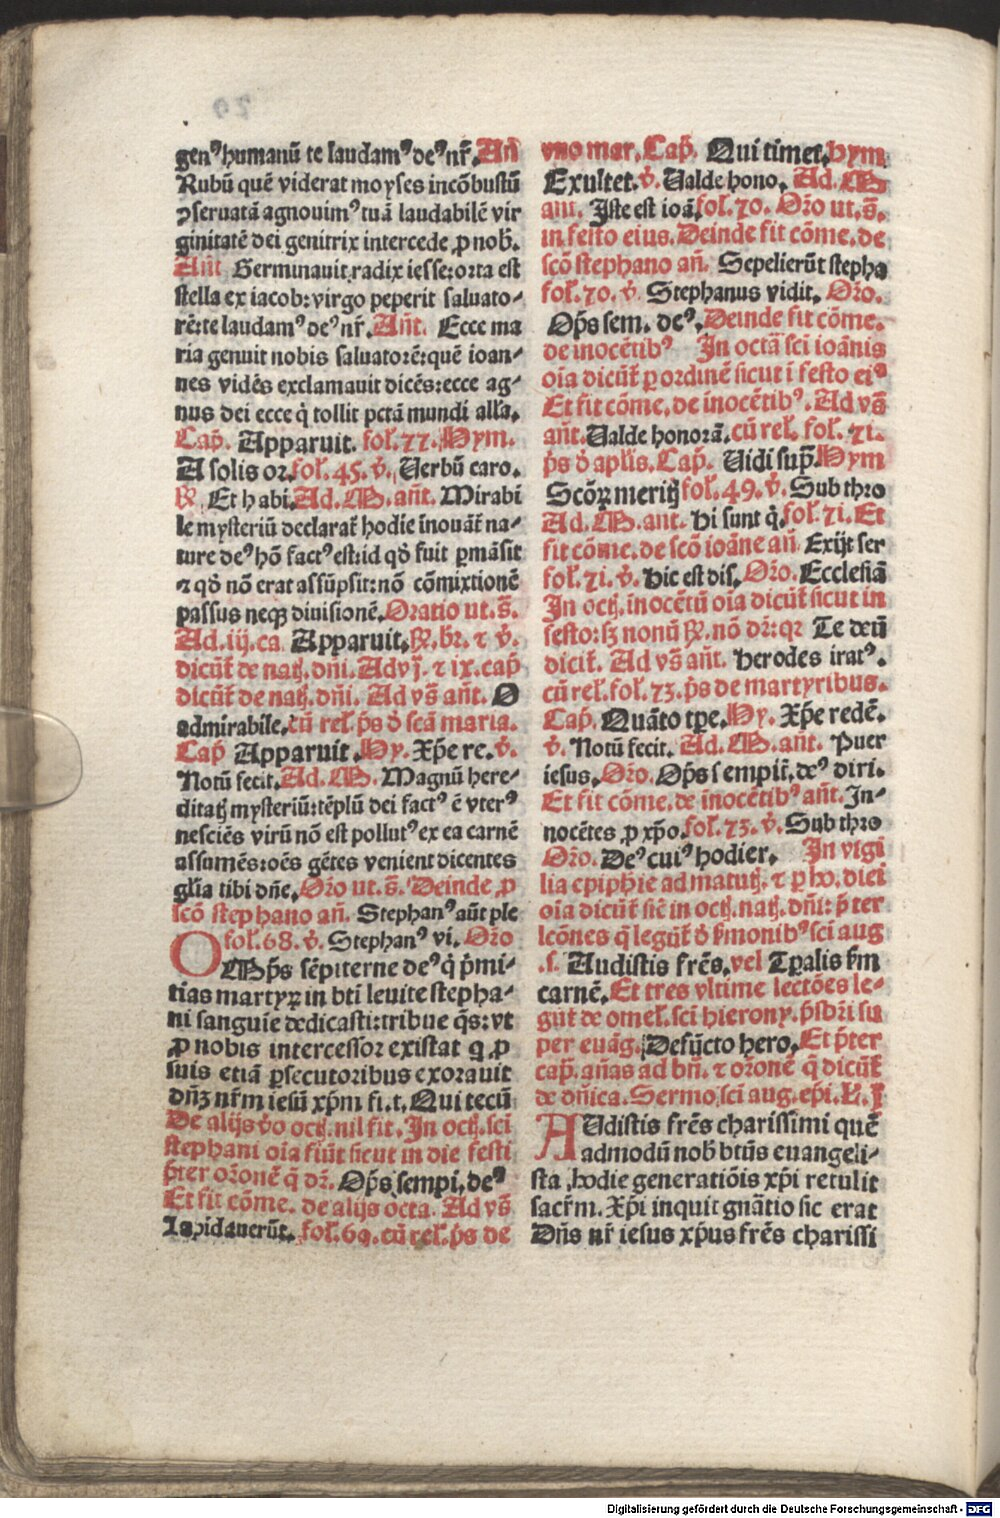 genꝰ humanũ te laudamꝰ deꝰ nr̃. Añ
Rubũ quẽ viderat moyses incõbustũ
ꝯseruatã agnouimꝰ tuã laudabilẽ vir
ginitatẽ dei genitrix intercede ꝓ nob̃.
Añt Germinauit radix iesse: orta est
stella ex iacob: virgo peperit saluato⸗
rẽ: te laudamꝰ deꝰ nr̃. Añt. Ecce ma
ria genuit nobis saluatorẽ: quẽ ioan⸗
nes vidẽs exclamauit dicẽs: ecce ag⸗
nus dei ecce q̇ tollit pctã mundi alla.
Cap̃. Apparuit. fol. 77. Hym.
A solis or. fol. 45. v̇. Uerbũ caro.
℟. Et habi. Ad. M. añt. Mirabi
le mysteriũ declarat̃ hodie ĩnouãt̃ na⸗
ture deꝰ hõ factꝰ est: id qđ fuit ꝑmãsit
⁊ qđ nõ erat assũpsit: nõ cõmixtionẽ
passus neqȝ diuisionẽ. Oratio ut. s̃.
Ad. iij. ca. Apparuit. ℟. br̃. ⁊ v̇.
dicũt̃ de natꝭ. dñi. Ad vj. ⁊ ix. cap̃
dicũt̃ de natꝭ. dñi. Ad vs̃ añt. O
admirabile. cũ rel̃. p̃s đ scã maria.
Cap̃ Apparuit. Hy. Xp̃e re. v̇.
Notũ fecit. Ad. M. Magnũ here⸗
ditatꝭ mysteriũ: tẽplũ dei factꝰ ẽ vterꝰ
nesciẽs virũ nõ est pollutꝰ ex ea carnẽ
assumẽs: oẽs gẽtes venient dicentes
glĩa tibi dñe. Or̃o ut. s̃. Deinde ꝓ
scõ stephano añ. Stephanꝰ aũt ple
fol. 68. v̇. Stephanꝰ vi. Or̃o
OMp̃s sẽpiterne deꝰ q̇ p̃mi⸗
tias martyꝝ in bt̃i leuite stepha⸗
ni sanguĩe dedicasti: tribue q̃s: vt
ꝓ nobis intercessor existat q ꝓ
suis etiã ꝑsecutoribus exorauit
dñȝ nr̃m iesũ xp̃m fi. t. Qui tecũ
De alijs đo octꝭ. nil fit. In octꝭ. sci
stephani oĩa fiũt sicut in die festi
p̃ter or̃onẽ q̃ dr̃. Op̃s sempi. deꝰ
Et fit cõme. de alijs octa. Ad vs̃
Lapidauerũt. fol. 69. cũ rel̃. p̃s de
vno mar. Cap̃. Qui timet. Hym
Exultet. v̇. Ualde hono. Ad. M
ant. Iste est ioã. fol. 70. Or̃o ut. s̃.
in festo eius. Deinde fit cõme. de
scõ stephano añ. Sepelierũt stepha
fol. 70. v̇. Stephanus vidit. Or̃o.
Op̃s sem. deꝰ. Deinde fit cõme.
de inocẽtibꝰ In octã sci ioãnis
oĩa dicũt̃ ꝑ ordinẽ sicut ĩ festo eiꝰ
Et fit cõme. de inocẽtibꝰ. Ad vs̃
añt. Ualde honorã. cũ rel̃. fol. 71.
p̃s đ aplĩs. Cap̃. Uidi sup̃. Hym
Scõꝝ meritꝭ fol. 49. v̇. Sub thro
Ad. M. ant. Hi sunt q̇. fol. 71. Et
fit cõme. de scõ ioãne añ Exijt ser
fol. 71. v̇. Hic est dis. Or̃o. Ecclesiã
In octꝭ. inocẽtũ oĩa dicũt̃ sicut in
festo: sȝ nonũ ℟. nõ dr̃: qꝛ Te deũ
dicit̃. Ad vs̃ añt. Herodes iratꝰ.
cũ rel̃. fol. 73. p̃s de martyribus.
Cap̃. Quãto tp̃e. Hy. Xp̃e redẽ.
v̇. Notũ fecit. Ad. M. añt. Puer
iesus. Or̃o. Op̃s sempit̃. deꝰ diri.
Et fit cõme. de ĩnocẽtibꝰ añt. In⸗
nocẽtes ꝓ xp̃o. fol. 73. v̇. Sub thro
Or̃o. Deꝰ cuiꝰ hodier. In vigi
lia epiphĩe ad matutꝭ. ⁊ ꝑ ho. diei
oĩa dicũt̃ sic̃ in octꝭ. natꝭ. dñi: p̃ter
lcõnes q̃ legũt̃ đ s̃monibꝰ sci aug
.s. Audistis fr̃es. vel Tꝑalis s̃m
carnẽ. Et tres vltime lectões le⸗
gũt̃ de omel̃. sci hierony. p̃sbr̃i su
per euãg. Defũcto hero. Et p̃ter
cap̃. añas ad bñ. ⁊ or̃onẽ q̃ dicũt̃
de dñica. Sermo. sci aug. ep̃i. L. j
AUdistis fr̃es charissimi quẽ
admodũ nob̃ bt̃us euangeli⸗
sta hodie generatiõis xp̃i retulit
sacr̃m. Xp̃i inquit gnãtio sic erat
Dñs nr̃ iesus xp̃us fr̃es charissi
Digitalisierung gefördert durch die Deutsche Forschungsgemeinschaft - DFG